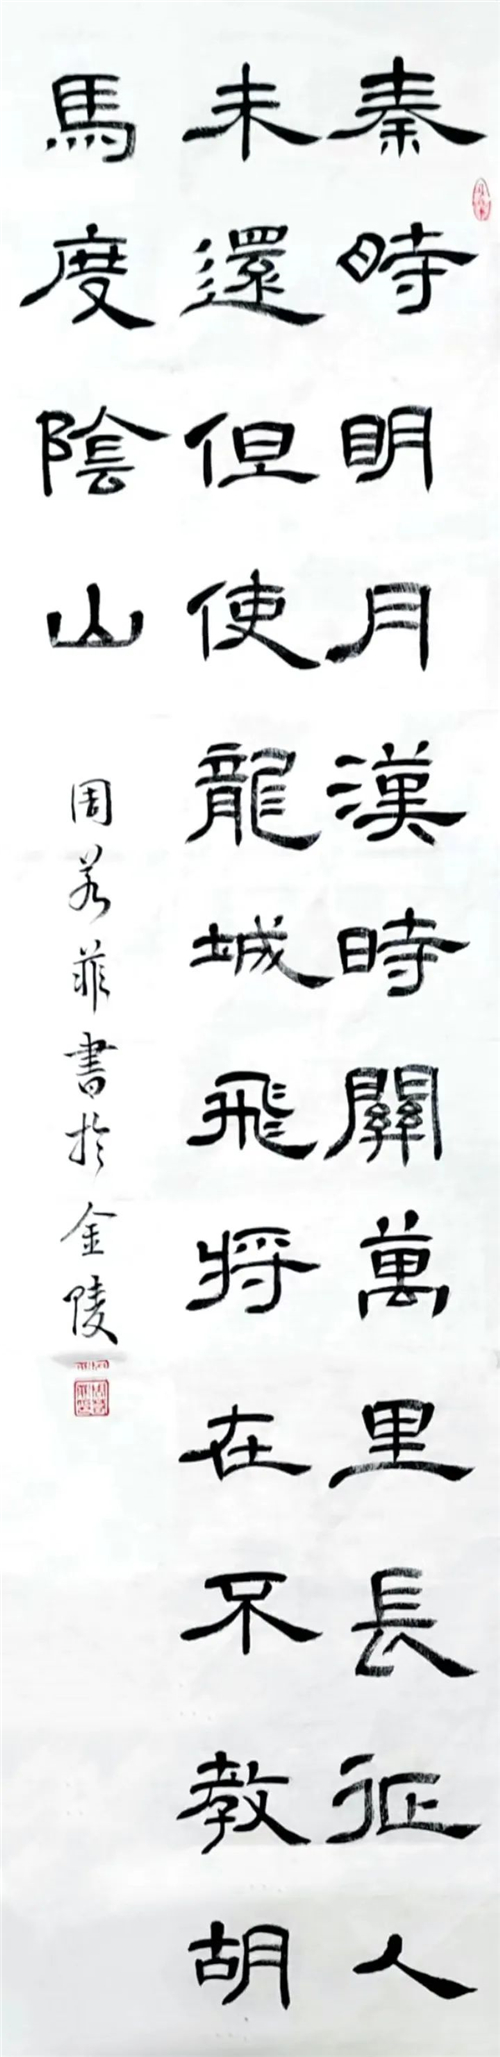 秦時明月漢時關萬里長征人
未還但使龍城飛将在不教胡
馬度陰山
周若菲書於金陵